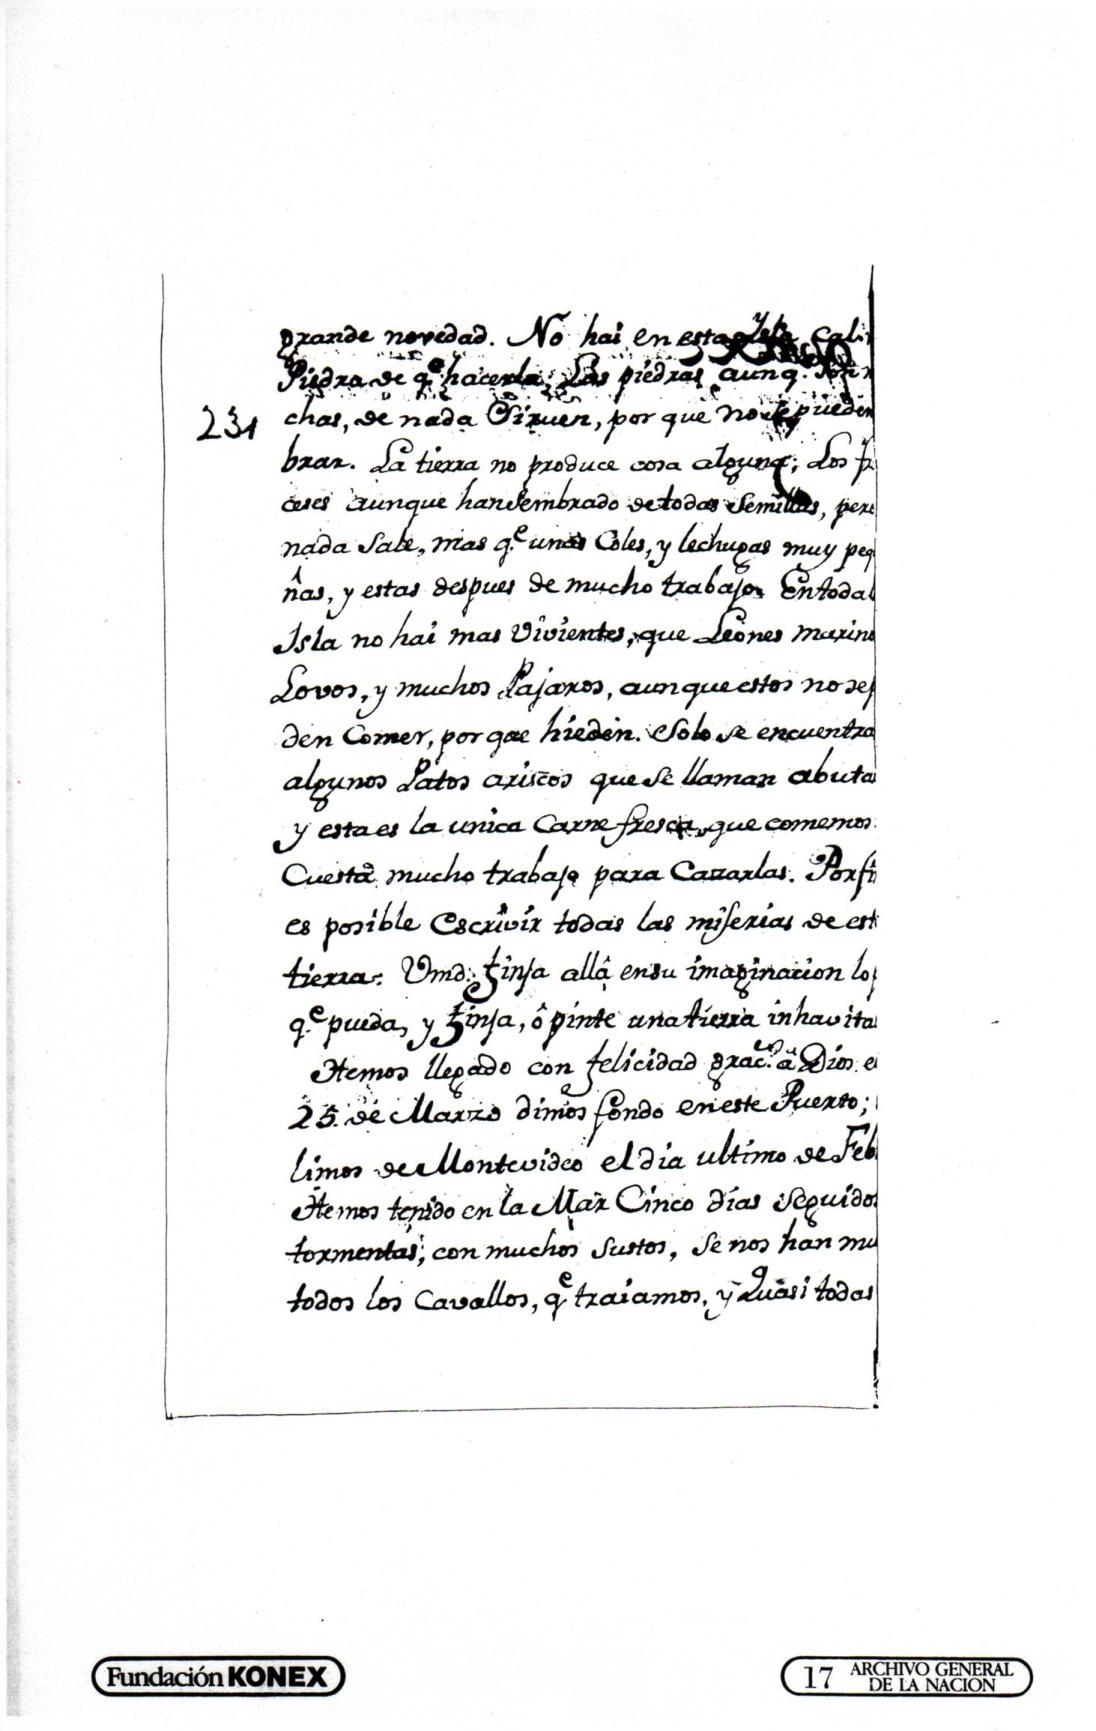 grande novedad. No hai en esta Isla Cal
Piedra de q.e hacerla; Las piedras aunq.
231
chas, de nada Sirven, por que no se pueden
brar. La tierra no produce cosa alguna; Los fr
ceses aunque han Sembrado de todas Semillas, pero
nada Sale, mas q.e unas Coles, y lechugas muy peq
ñas, y estas despues de mucho trabajo. En toda l
Isla no hai mas Vivientes, que Leones marino
Lovos, y muchos Pajaros, aunque estos no se p
den Comer, por que hieden. Solo se encuentra
algunos Patos ariscos que Se llaman abuta
y esta es la unica Carne fresca, que comemos
Cuesta mucho trabajo para Cazarlas. Por fi
es posible Escrivir todas las miserias de est
tierra. Vmd. finja allâ en su imaginacion lo
q.e pueda, y finja, ô pinte una tierra inhavita
Hemos llegado con felicidad grac.s â Dios e
25. de Marzo dimos fondo en este Puerto;
limos de Montevideo el dia ultimo de Feb
Hemos tenido en la Mar Cinco dias Seguidos
tormentas, con muchos Sustos, Se nos han mu
todos los Cavallos, q.e traiamos, y Quasi todas
Fundación KONEX
17 ARCHIVO GENERAL
DE LA NACION